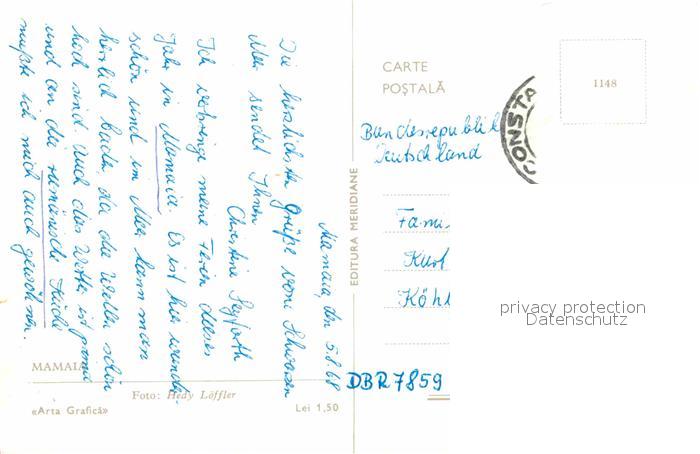 Mamaia, den 5.8.68
Die herzlichsten Grüße vom Schwarzen
Meer sendet Ihnen
Christine Seyfarth
Ich verbringe meine Ferien dieses
Jahr in Mamaia. Es ist hier wunder-
schön und im Meer kann man
herrlich baden, da die Wellen schön
hoch sind. Auch das Wetter ist prima
und an die rumänische Küche
mußte ich mich auch gewöhnen.
MAMAIA
Foto: Hedy Löffler
«Arta Grafică»
Lei 1,50
EDITURA MERIDIANE
CARTE
POȘTALĂ
1148
CONSTA
Bundesrepublik
Deutschland
Fami
Kurt
Köhl
DBR 7859
privacy protection
Datenschutz